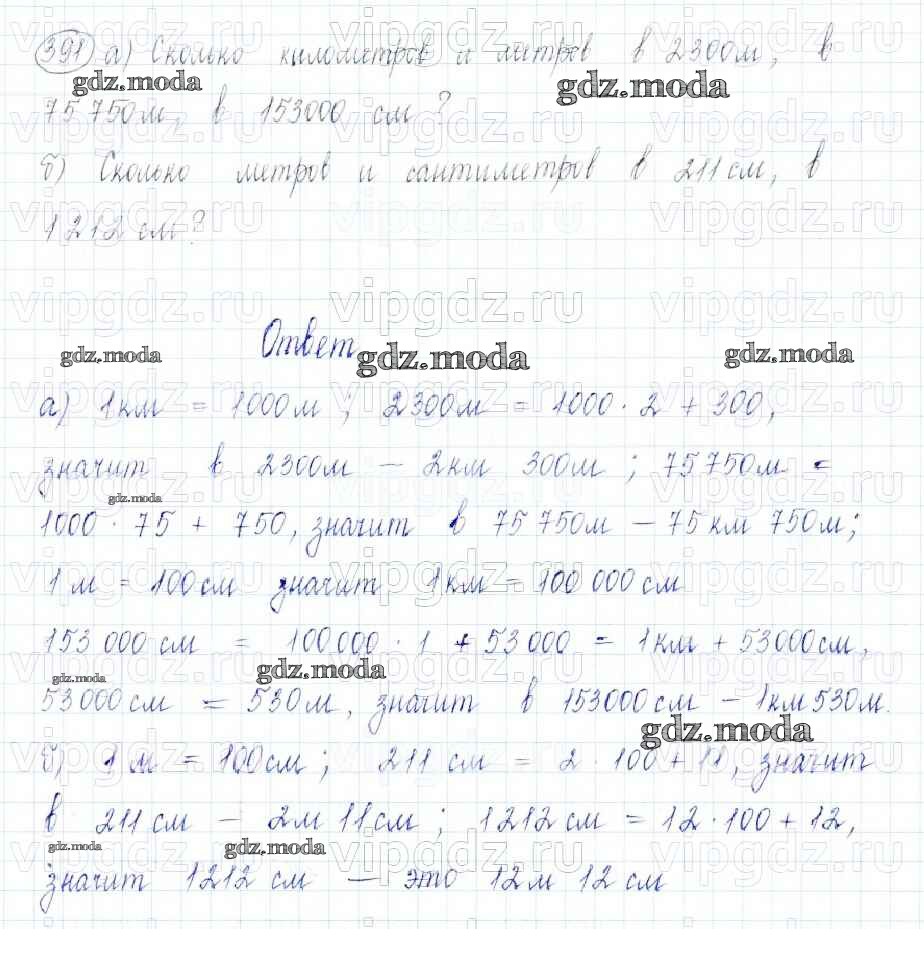 391 а) Сколько километров и метров в 2300м, в
gdz.moda gdz.moda
75 750м, в 153000 см?
б) Сколько метров и сантиметров в 211см, в
1212 см?
Ответ
gdz.moda gdz.moda gdz.moda
а) 1км = 1000м; 2300м = 1000·2 + 300,
значит в 2300м — 2км 300м; 75 750м =
gdz.moda
1000·75 + 750, значит в 75 750м — 75 км 750м;
1 м = 100см значит 1км = 100 000 см
153 000 см = 100 000 · 1 + 53 000 = 1км + 53000см,
gdz.moda gdz.moda
53 000 см = 530м, значит в 153000см — 1км 530м.
gdz.moda
б) 1 м = 100см; 211 см = 2·100 + 11, значит
в 211 см — 2м 11см; 1212см = 12·100 + 12,
gdz.moda gdz.moda
значит 1212 см — это 12м 12 см
vipgdz.ru